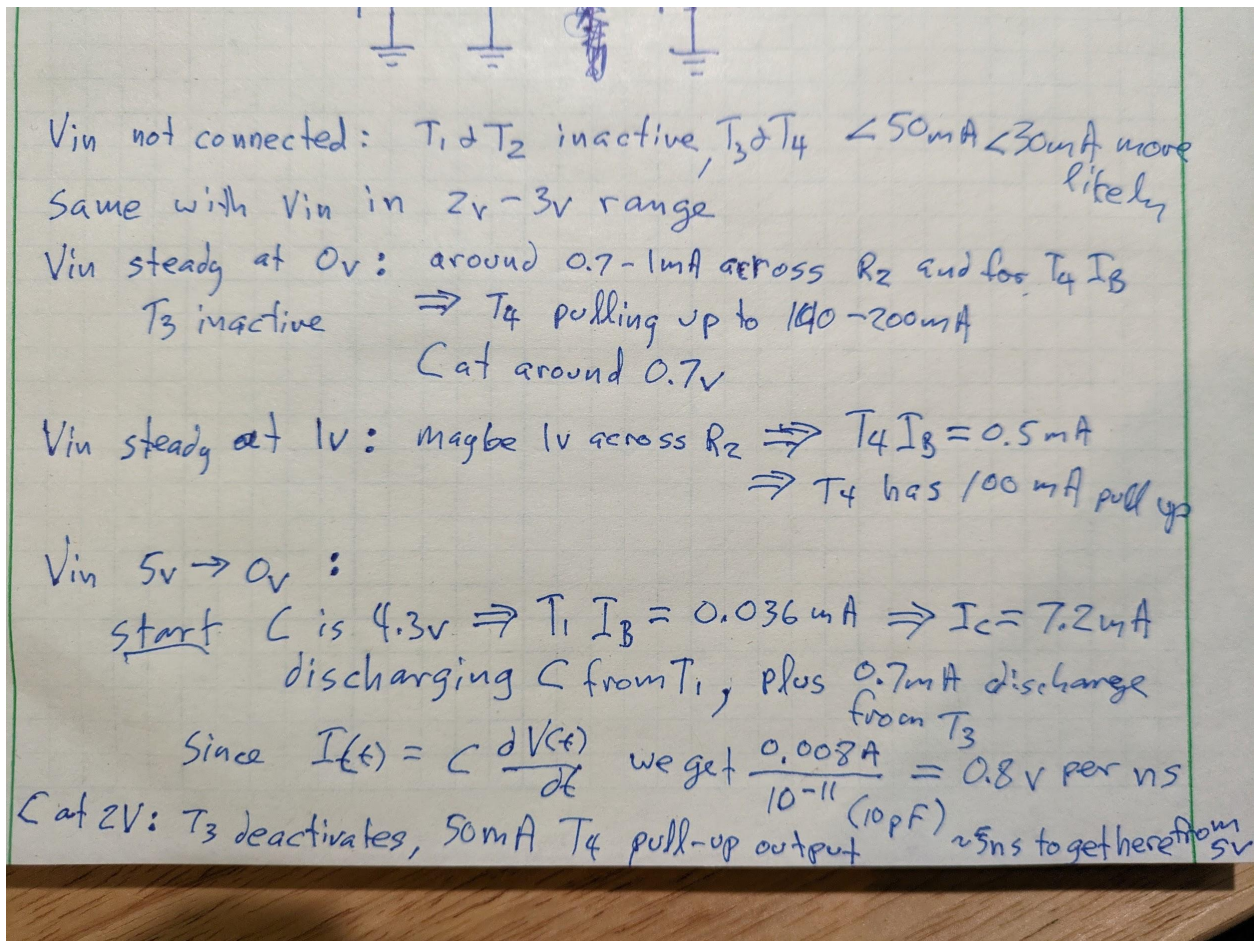 Vin not connected: T1 & T2 inactive, T3 & T4 <50mA <30mA more
likely
Same with Vin in 2v-3v range
Vin steady at 0v: around 0.7-1mA across R2 and for T4 IB
T3 inactive ⇒ T4 pulling up to 140-200mA
C at around 0.7v
Vin steady at 1v: maybe 1v across R2 ⇒ T4 IB = 0.5mA
⇒ T4 has 100mA pull up
Vin 5v → 0v :
start C is 4.3v ⇒ T1 IB = 0.036mA ⇒ Ic = 7.2mA
discharging C from T1, plus 0.7mA discharge
from T3
Since I(t) = C dV(t)/dt we get 0.008A/10^-11 (10pF) = 0.8v per ns
C at 2V: T3 deactivates, 50mA T4 pull-up output ~5ns to get here from
5v